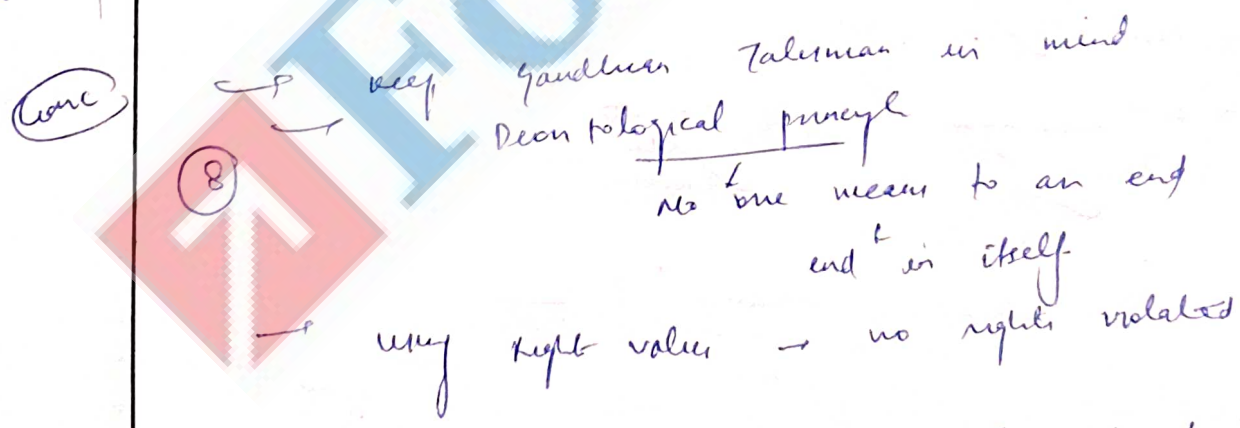 Conc → keep Gandhian Talisman in mind
→ Deontological principle
8
No one means to an end
end in itself
→ using right values → no rights violated